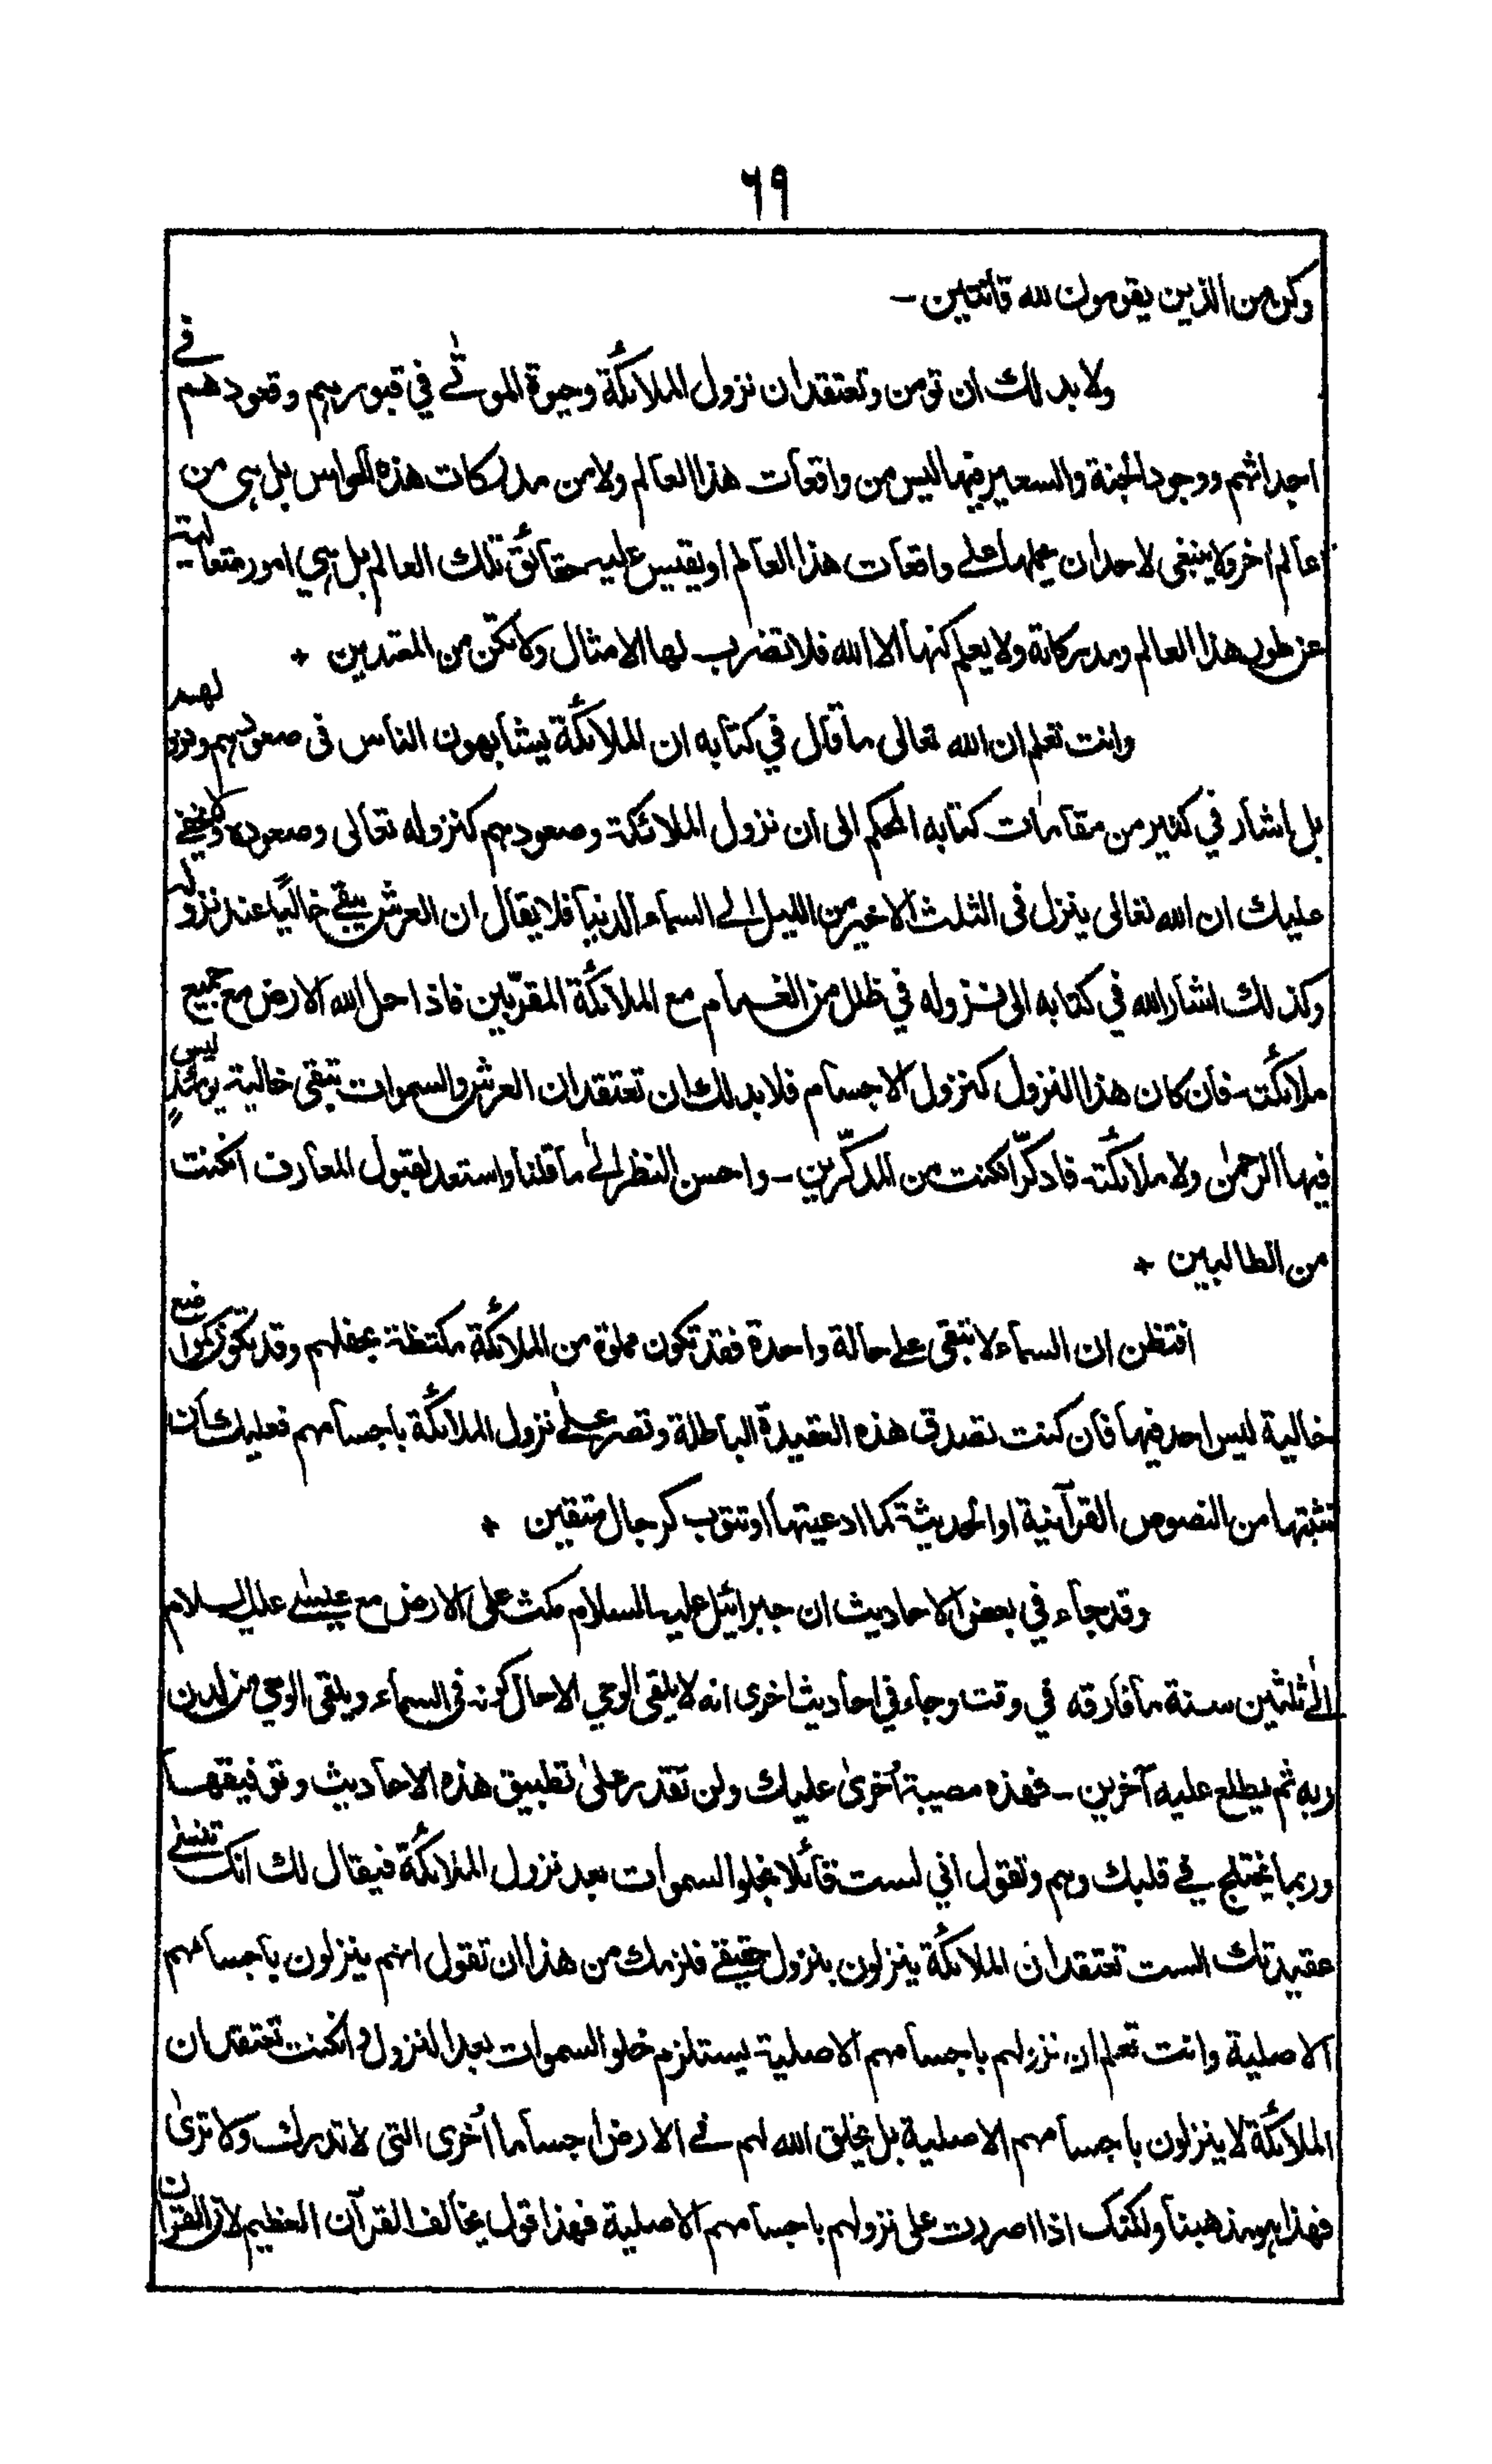 ٦٩
وكن من الذين يقومون لله قانتين -
ولا بد لك ان تؤمن وتعتقد ان نزول الملائكة وحيوة الموتٰى في قبورهم وقعودهم في
اجداثهم ووجود الجنة والسعير فيها ليس من واقعات هذا العالم ولا من مدركات هذه الحواس بل هي من
عالم اخر ولا ينبغي لاحد ان يحملها على واقعات هذا العالم او يقيس عليه حقائق تلك العالم بل هي امور متعالية
عن طور هذا العالم ومدركاته ولا يعلم كنهها الا الله فلا تضرب لها الامثال ولا تكن من المعتدين +
وانت تعلم ان الله تعالى ما قال في كتابه ان الملائكة يشابهون الناس فى صعودهم ونزولهم
بل اشار في كثير من مقامات كتابه المحكم الى ان نزول الملائكة وصعودهم كنزوله تعالى وصعوده ولا يخفى
عليك ان الله تعالى ينزل فى الثلث الاخير من الليل الى السماء الدنيا فلا يقال ان العرش يبقى خاليًا عند نزوله
وكذلك اشار الله في كتابه الى نزوله في ظلل من الغمام مع الملائكة المقرّبين فاذا حل الله الارض مع جميع
ملائكته - فان كان هذا النزول كنزول الاجسام فلا بد لك ان تعتقد ان العرش والسموات تبقى خالية يومئذٍ ليس
فيها الرحمٰن ولا ملائكته فادكّر ان كنت من المدّكّرين - واحسن النظر الىٰ ما قلنا واستعد لقبول المعارف ان كنت
من الطالبين +
افتظن ان السماء لا تبقى على حالة واحدة فقد تكون مملوة من الملائكة مكتظة بحفلهم وقد تكون كموضع
خالية ليس احد فيها فان كنت تصدق هذه العقيدة الباطلة وتصر علىٰ نزول الملائكة باجسامهم فعليك ان
تثبتها من النصوص القرآنية او الحديثية كما ادعيتها او تتوب كرجال متقين +
وقد جاء في بعض الاحاديث ان جبرائيل عليه السلام مكث على الارض مع عيسىٰ عليه السلام
الىٰ ثلثين سنة ما فارقه في وقت وجاء في احاديث اخرى انه لا يلقى الوحي الا حال كونه فى السماء ويلقى الوحي من لدن
ربه ثم يطلع عليه آخرين - فهذه مصيبة أخرىٰ عليك ولن تقدر علىٰ تطبيق هذه الاحاديث وتوفيقها
وربما يختلج في قلبك وهم وتقول اني لست قائلا بخلو السموات بعد نزول الملائكة فيقال لك انك تنسىٰ
عقيدتك الست تعتقد ان الملائكة ينزلون بنزول حقيقي فلزمك من هذا ان تقول انهم ينزلون باجسامهم
الاصلية وانت تعلم ان نزولهم باجسامهم الاصلية يستلزم خلو السموات بعد النزول وان كنت تعتقد ان
الملائكة لا ينزلون باجسامهم الاصلية بل يخلق الله لهم في الارض اجساما أخرى التي لا تدرك ولا ترىٰ
فهذا هو مذهبنا ولكنك اذا اصررت على نزولهم باجسامهم الاصلية فهذا قول يخالف القرآن العظيم لان القرآن